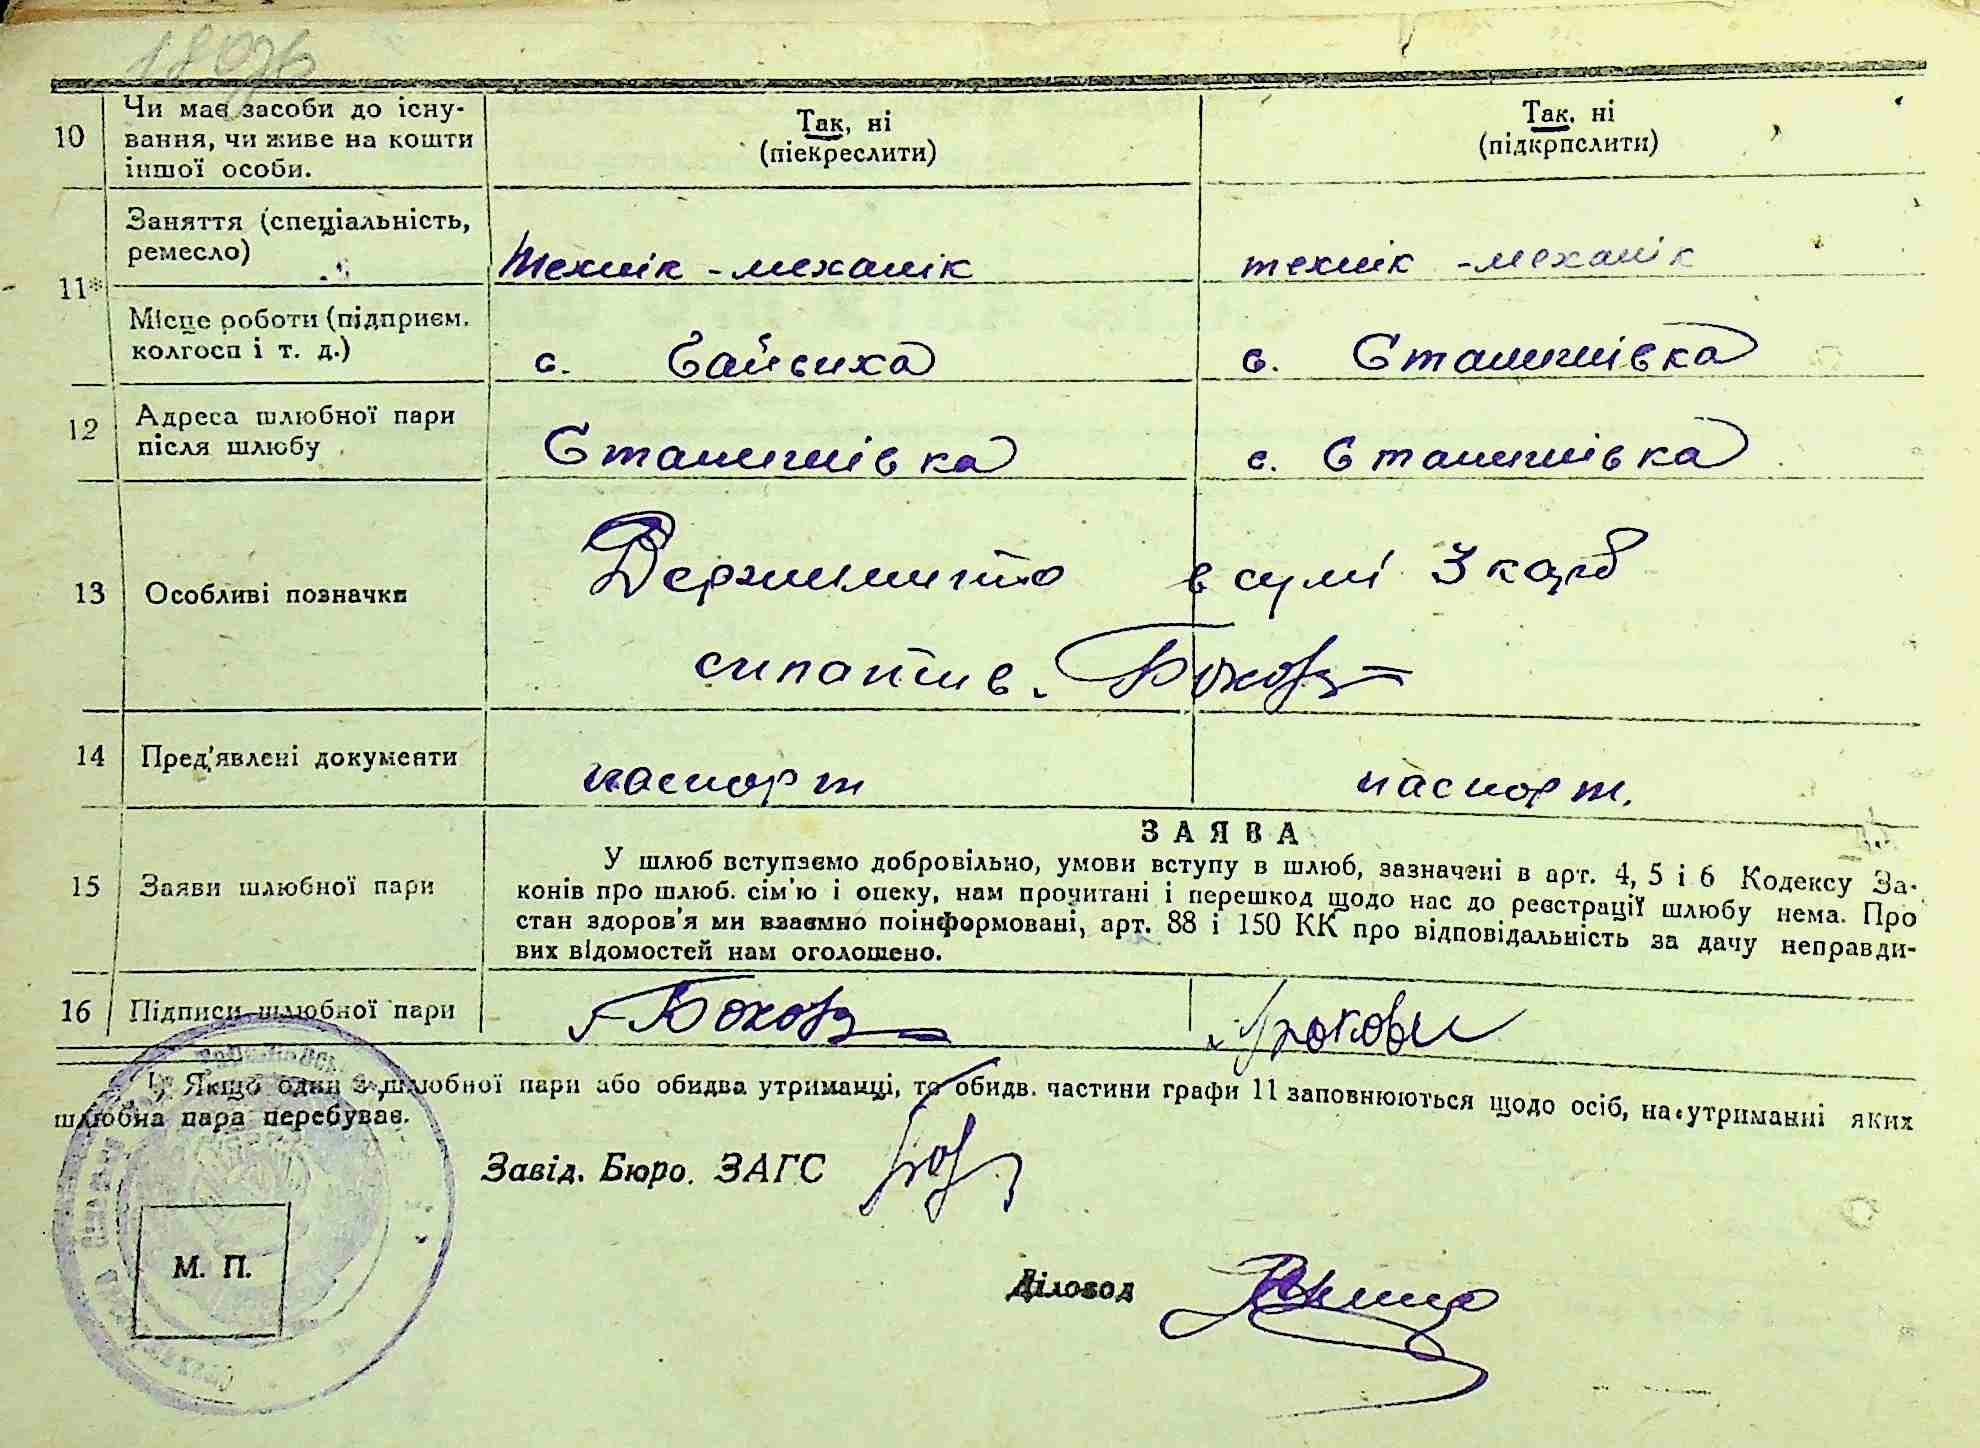 18076
10 Чи має засоби до існу-
вання, чи живе на кошти
іншої особи.
Так, ні
(піекреслити)
Так, ні
(підкрпслити)
11*
Заняття (спеціальність,
ремесло)
технік - механік
технік - механік
Місце роботи (підприєм.
колгосп і т. д.)
с. Байбиха
с. Станишівка
12 Адреса шлюбної пари
після шлюбу
Станишівка
с. Станишівка
13 Особливі позначки
Держмито в сумі 3 карб
сплатив.
14 Пред'явлені документи
паспорт
паспорт.
ЗАЯВА
15 Заяви шлюбної пари
У шлюб вступаємо добровільно, умови вступу в шлюб, зазначені в арт. 4, 5 і 6 Кодексу За-
конів про шлюб. сім'ю і опеку, нам прочитані і перешкод щодо нас до реєстрації шлюбу нема. Про
стан здоров'я ми взаємно поінформовані, арт. 88 і 150 КК про відповідальність за дачу неправди-
вих відомостей нам оголошено.
16 Підписи шлюбної пари
1) Якщо один з шлюбної пари або обидва утриманці, то обидв. частини графи 11 заповнюються щодо осіб, на утриманні яких
шлюбна пара перебуває.
Завід. Бюро. ЗАГС
М. П.
Діловод